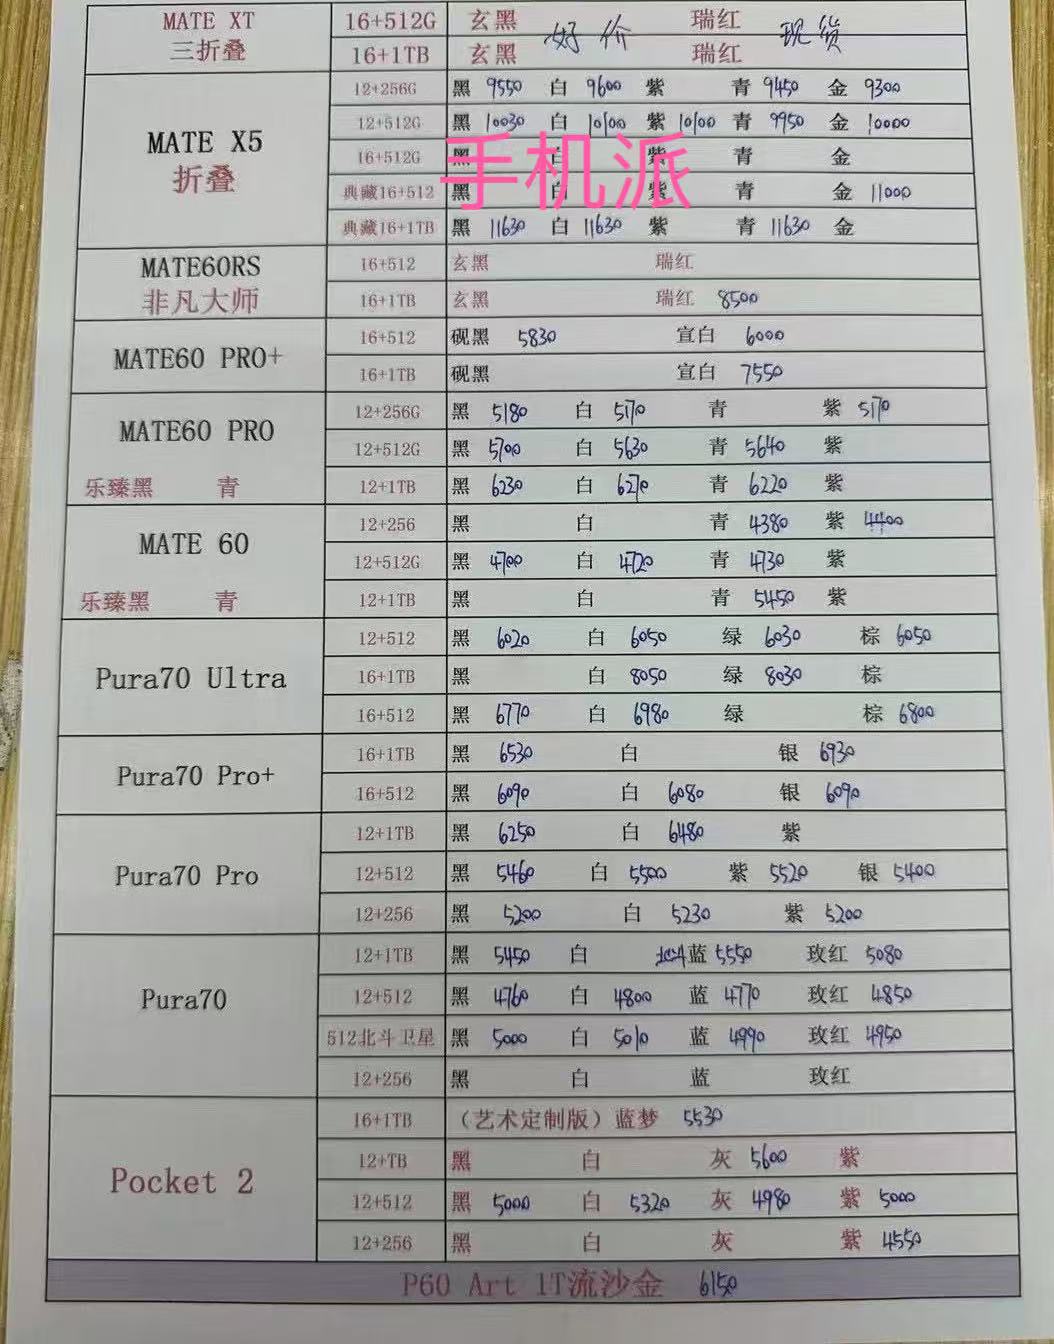 MATE XT 16+512G 玄黑 瑞红
三折叠 16+1TB 玄黑 好价 瑞红 现货
12+256G 黑 9550 白 9600 紫 青 9450 金 9300
12+512G 黑 10030 白 10100 紫 10100 青 9950 金 10000
MATE X5 16+512G 黑 白 紫 青 金
手机派
折叠 典藏16+512 黑 白 紫 青 金 11000
典藏16+1TB 黑 11630 白 11630 紫 青 11630 金
MATE60RS 16+512 玄黑 瑞红
非凡大师 16+1TB 玄黑 瑞红 8500
MATE60 PRO+ 16+512 砚黑 5830 宣白 6000
16+1TB 砚黑 宣白 7550
12+256G 黑 5180 白 5170 青 紫 5170
MATE60 PRO 12+512G 黑 5700 白 5630 青 5640 紫
乐臻黑 青 12+1TB 黑 6230 白 6270 青 6220 紫
12+256 黑 白 青 4380 紫 4400
MATE 60 12+512G 黑 4700 白 4720 青 4730 紫
乐臻黑 青 12+1TB 黑 白 青 5450 紫
12+512 黑 6020 白 6050 绿 6030 棕 6050
Pura70 Ultra 16+1TB 黑 白 8050 绿 8030 棕
16+512 黑 6770 白 6980 绿 棕 6800
Pura70 Pro+ 16+1TB 黑 6530 白 银 6930
16+512 黑 6090 白 6080 银 6090
12+1TB 黑 6250 白 6480 紫
Pura70 Pro 12+512 黑 5460 白 5500 紫 5520 银 5400
12+256 黑 5200 白 5230 紫 5200
12+1TB 黑 5450 白 北斗蓝 5550 玫红 5080
Pura70 12+512 黑 4760 白 4800 蓝 4770 玫红 4850
512北斗卫星 黑 5000 白 5010 蓝 4990 玫红 4950
12+256 黑 白 蓝 玫红
16+1TB (艺术定制版)蓝梦 5530
Pocket 2 12+TB 黑 白 灰 5600 紫
12+512 黑 5000 白 5320 灰 4980 紫 5000
12+256 黑 白 灰 紫 4550
P60 Art 1T流沙金 6150